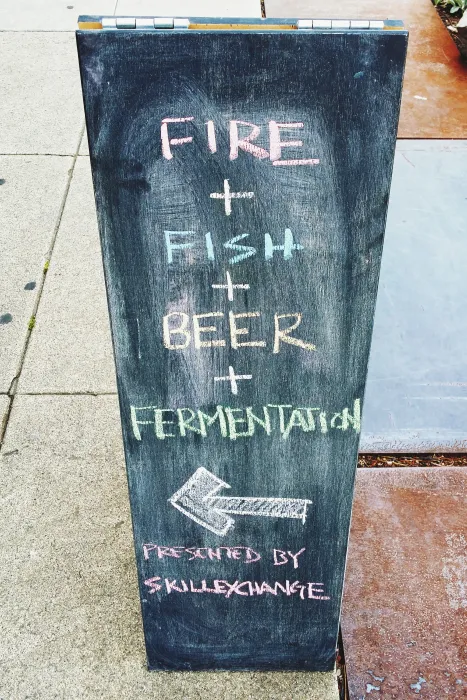 FIRE
+
FISH
+
BEER
+
FERMENTATION
PRESENTED BY
SKILLEXCHANGE